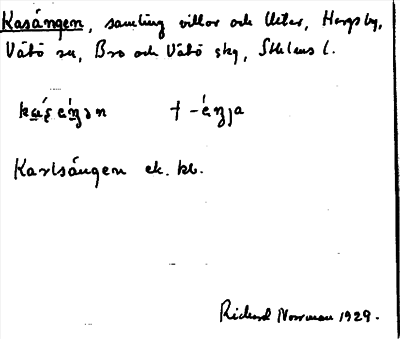 Kasängen, samling villor och tomter, Harg sby,
Vätö sn, Bro och Vätö skg, Sthlms l.
ka̱ʹʂɛŋən † -ɛ́ŋja
Karlsängen ek. kb.
Rickard Norrman 1929.